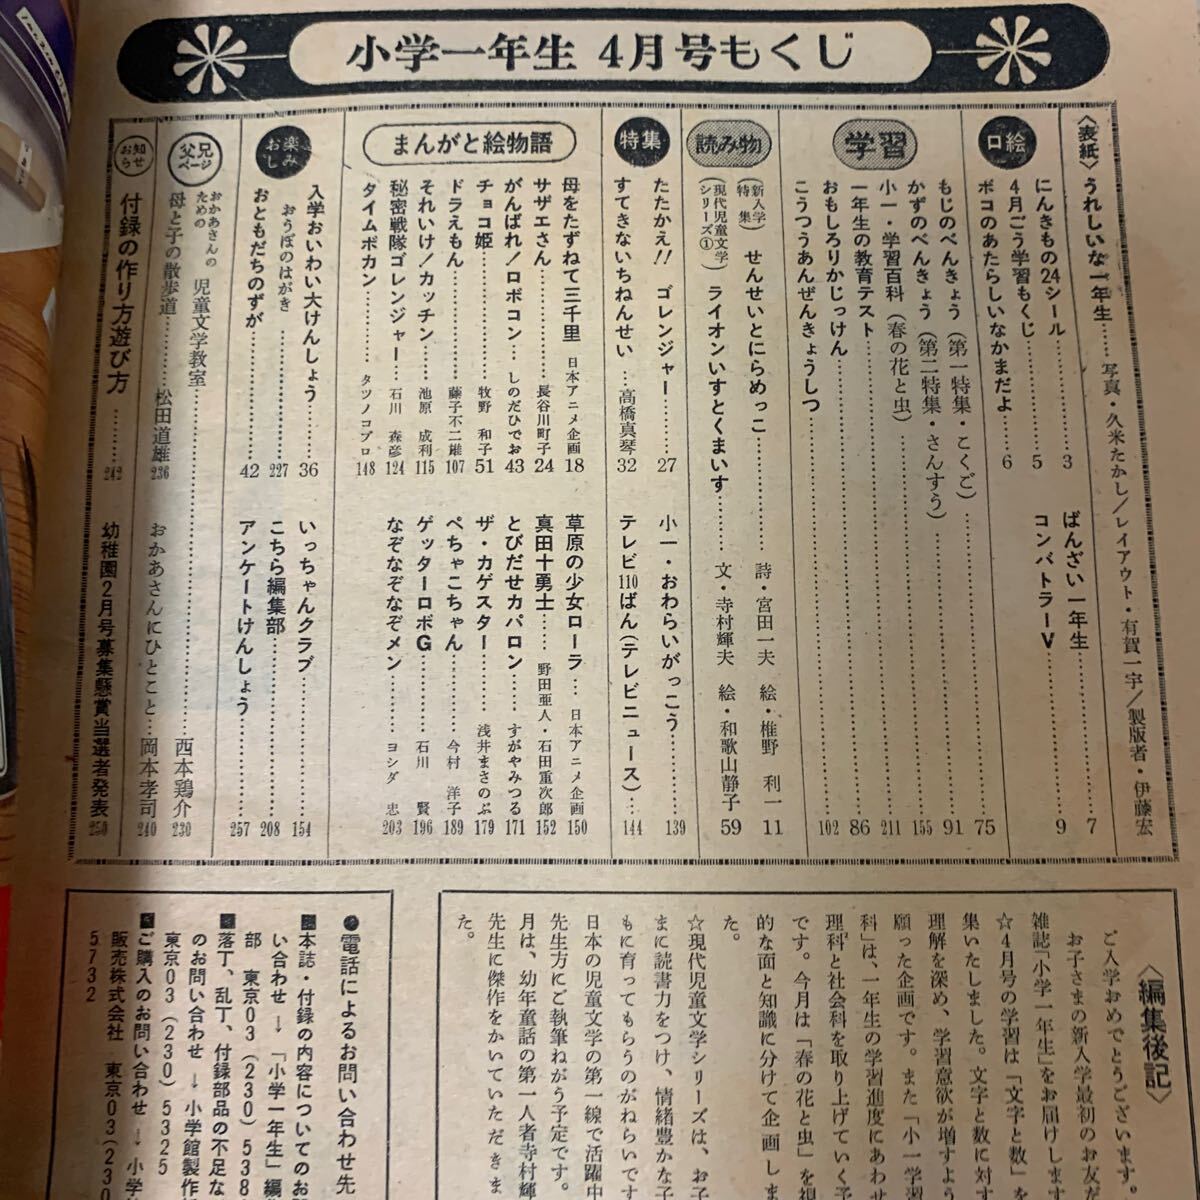 小学一年生 4月号もくじ
〈表紙〉うれしいな一年生……写真・久米たかし/レイアウト・有賀一宇/製版者・伊藤宏
口絵
にんきもの24シール……3
4月ごう学習もくじ……5
ポコのあたらしいなかまだよ…6
ばんざい一年生……7
コンバトラーV……9
学習
もじのべんきょう(第一特集・こくご)……75
かずのべんきょう(第二特集・さんすう)……91
小一・学習百科(春の花と虫)……155
一年生の教育テスト……211
おもしろりかじっけん……86
こうつうあんぜんきょうしつ……102
読み物
(新入学特集) せんせいとにらめっこ……詩・宮田一夫 絵・椎野利一 11
(現代児童文学シリーズ①) ライオンいすとくまいす……文・寺村輝夫 絵・和歌山静子 59
特集
たたかえ!! ゴレンジャー……27
すてきないちねんせい…高橋真琴 32
小一・おわらいがっこう……139
テレビ110ばん(テレビニュース)…144
まんがと絵物語
母をたずねて三千里 日本アニメ企画 18
サザエさん……長谷川町子 24
がんばれ!ロボコン…しのだひでお 43
チョコ姫……牧野和子 51
ドラえもん……藤子不二雄 107
それいけ!カッチン……池原成利 115
秘密戦隊ゴレンジャー…石川森彦 124
タイムボカン……タツノコプロ 148
草原の少女ローラ…日本アニメ企画 150
真田十勇士…野田亜人・石田重次郎 152
とびだせカパロン……すがやみつる 171
ザ・カゲスター……浅井まさのぶ 179
ぺちゃこちゃん……今村洋子 189
ゲッターロボG……石川賢 196
なぞなぞなぞメン……ヨシダ忠 203
お楽しみ
入学おいわい大けんしょう…36
おうぼのはがき……227
おともだちのずが……42
いっちゃんクラブ……154
こちら編集部……208
アンケートけんしょう……257
父兄ページ
おかあさんのための 児童文学教室……西本鶏介 230
母と子の散歩道……松田道雄 236
おかあさんにひとこと…岡本孝司 240
お知らせ
付録の作り方遊び方……242
幼稚園2月号募集懸賞当選者発表 250
〈編集後記〉
ご入学おめでとうございます。
お子さまの新入学最初のお友だ
雑誌「小学一年生」をお届けします
☆4月号の学習は「文字と数」を
集いたしました。文字と数に対す
理解を深め、学習意欲が増すよう
願った企画です。また「小一学習
科」は、一年生の学習進度にあわせ
理科と社会科を取り上げていく予
です。今月は「春の花と虫」を視
的な面と知識に分けて企画しま
た。
☆現代児童文学シリーズは、お子
まに読書力をつけ、情緒豊かな子
もに育ってもらうのがねらいです
日本の児童文学の第一線で活躍中
先生方にご執筆ねがう予定です。
月は、幼年童話の第一人者寺村輝
先生に傑作をかいていただきま
た。
●電話によるお問い合わせ先
■本誌・付録の内容についてのお問
い合わせ→「小学一年生」編
部 東京03(230)538
■落丁、乱丁、付録部品の不足な
のお問い合わせ→小学館製作
東京03(230)5325
■ご購入のお問い合わせ→小学
販売株式会社 東京03(230
5732